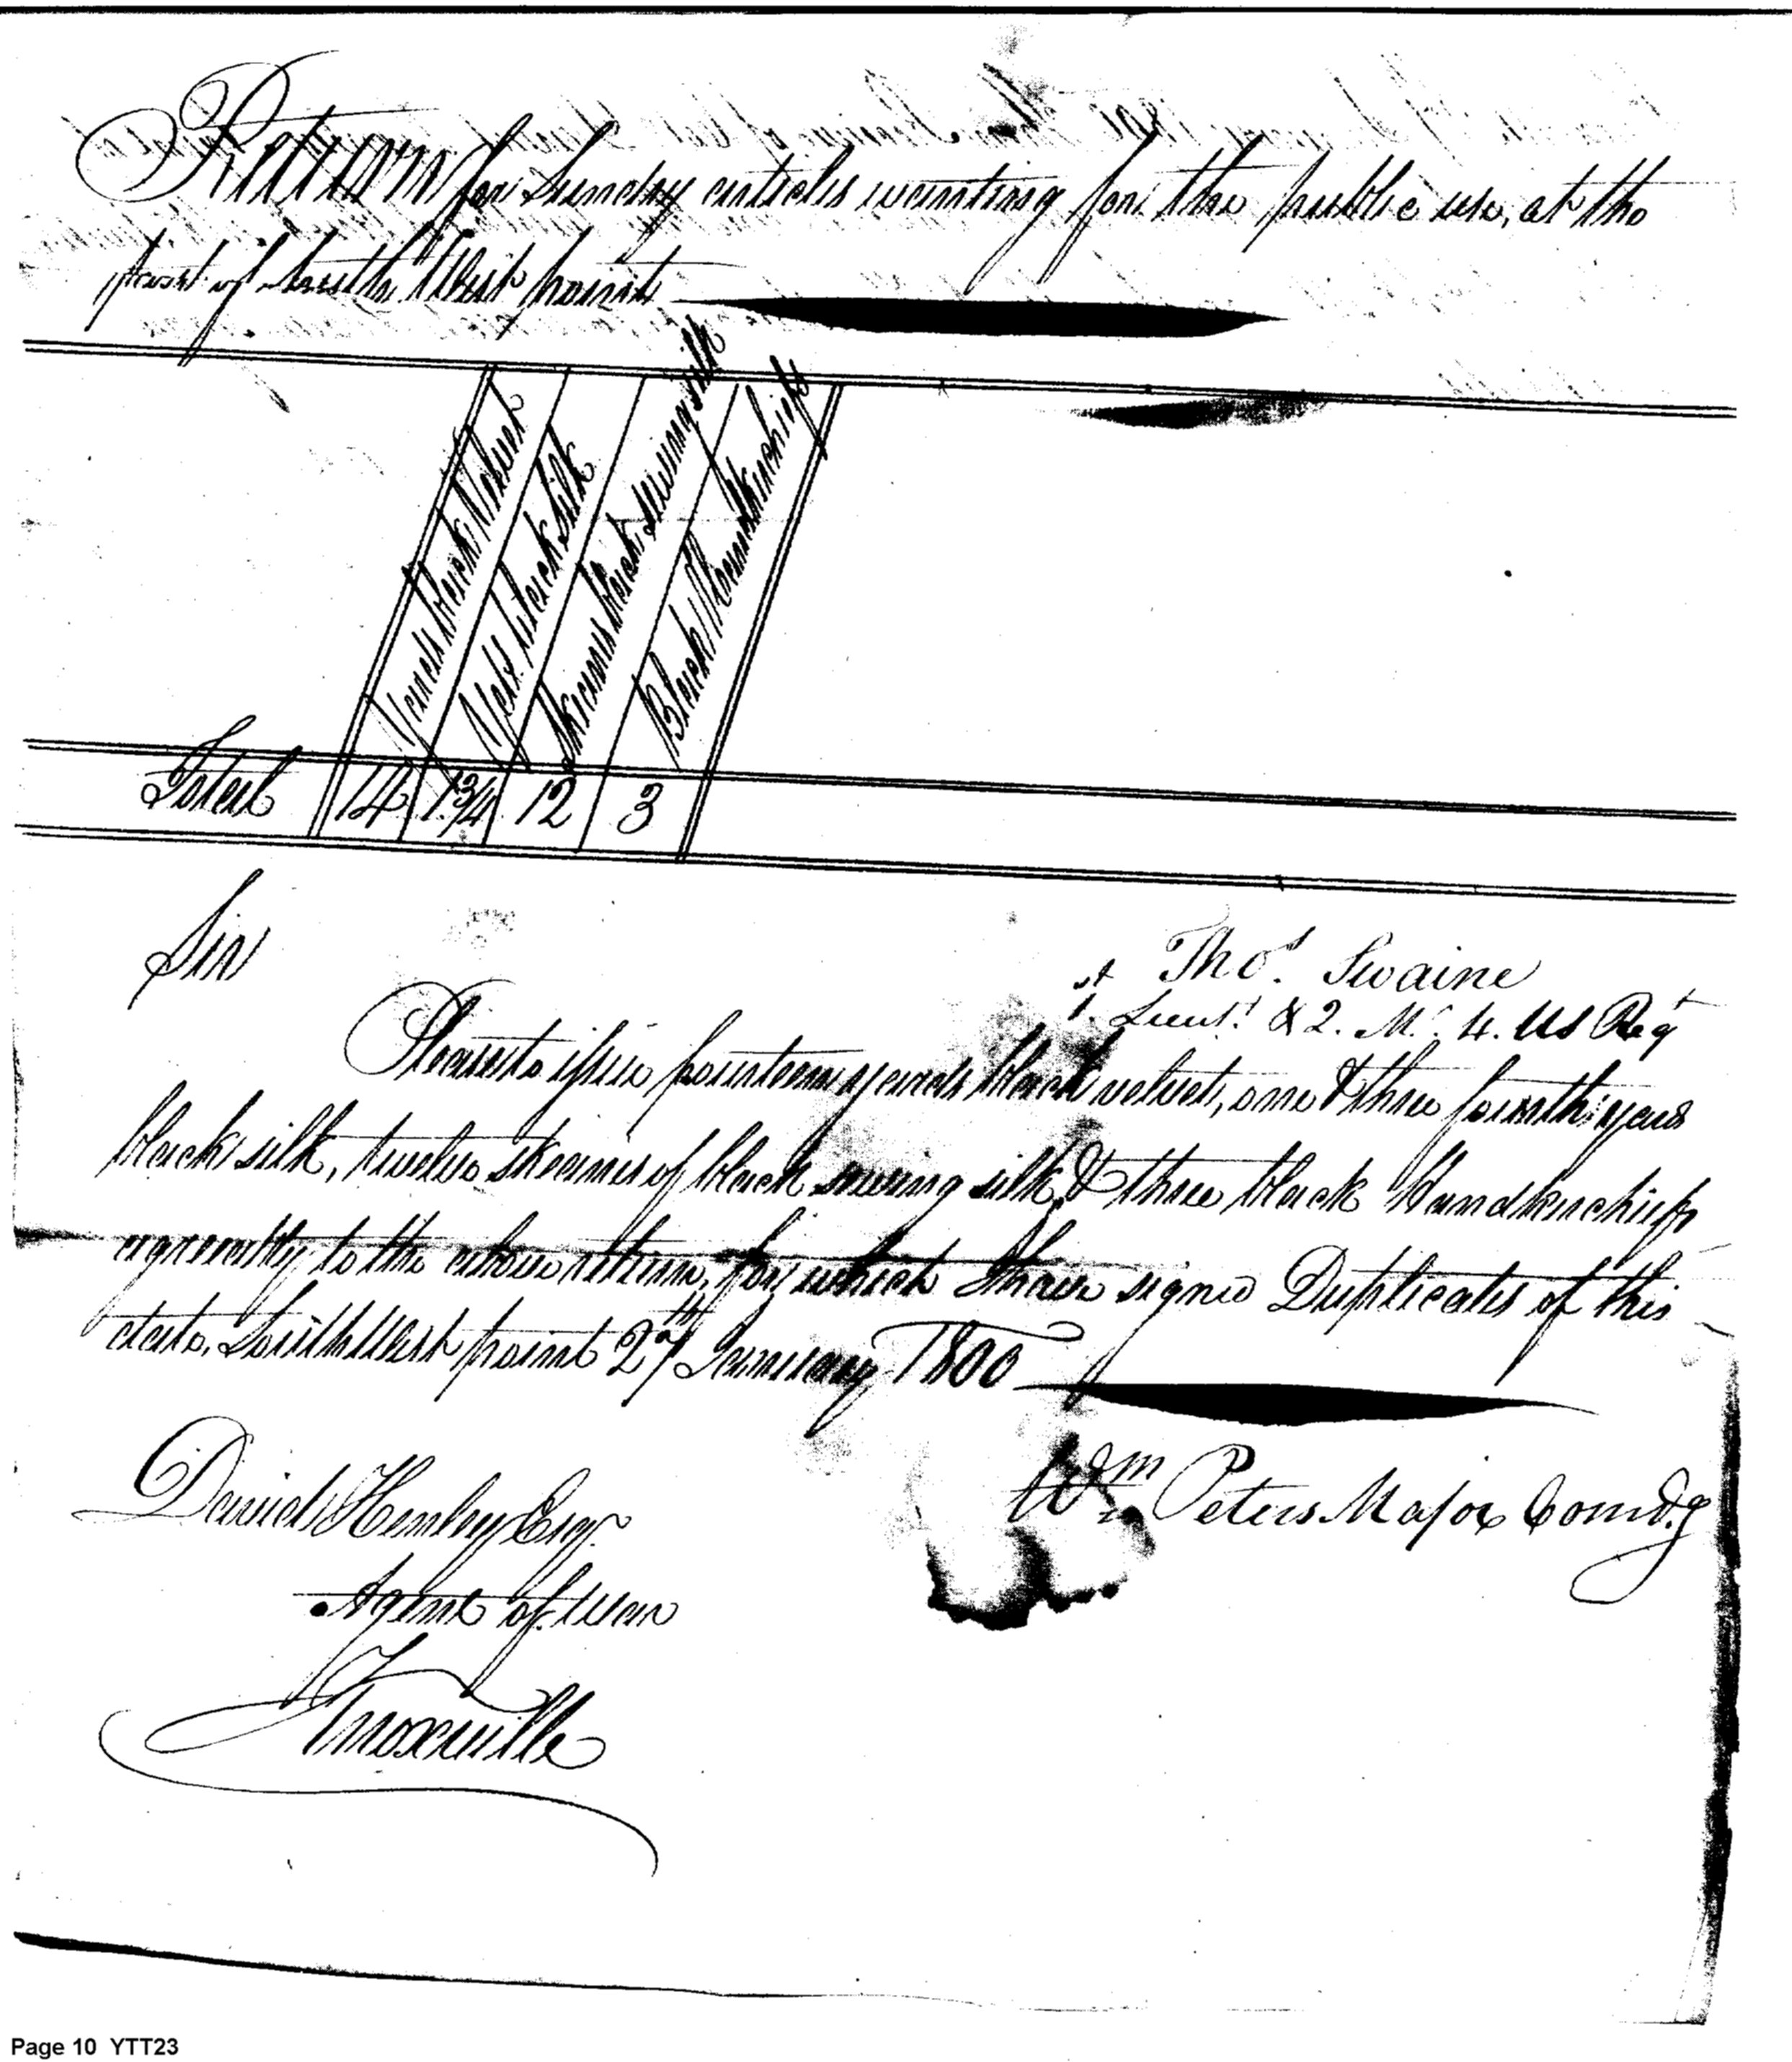 Return for Sundry articles wanting for the public use, at the
post of South West point
Yards black Velvet
Yds. black Silk
Skeans black sewing silk
Black Handkerchiefs
Total 14 1 3/4 12 3
Sir
Thos. Swaine
1st. Lieut. & Q. Mr. 4. US Regt
Please to issue fourteen yards black velvet, one & three fourth yards
black silk, twelve skeans of black sewing silk, & three black Handkerchiefs
agreeably to the above return, for which I have signed Duplicates of this
date. South West point 27th January 1800
David Henley Esqr.
Agent of War
Knoxville
Wm Peters Major Comdg
Page 10 YTT23